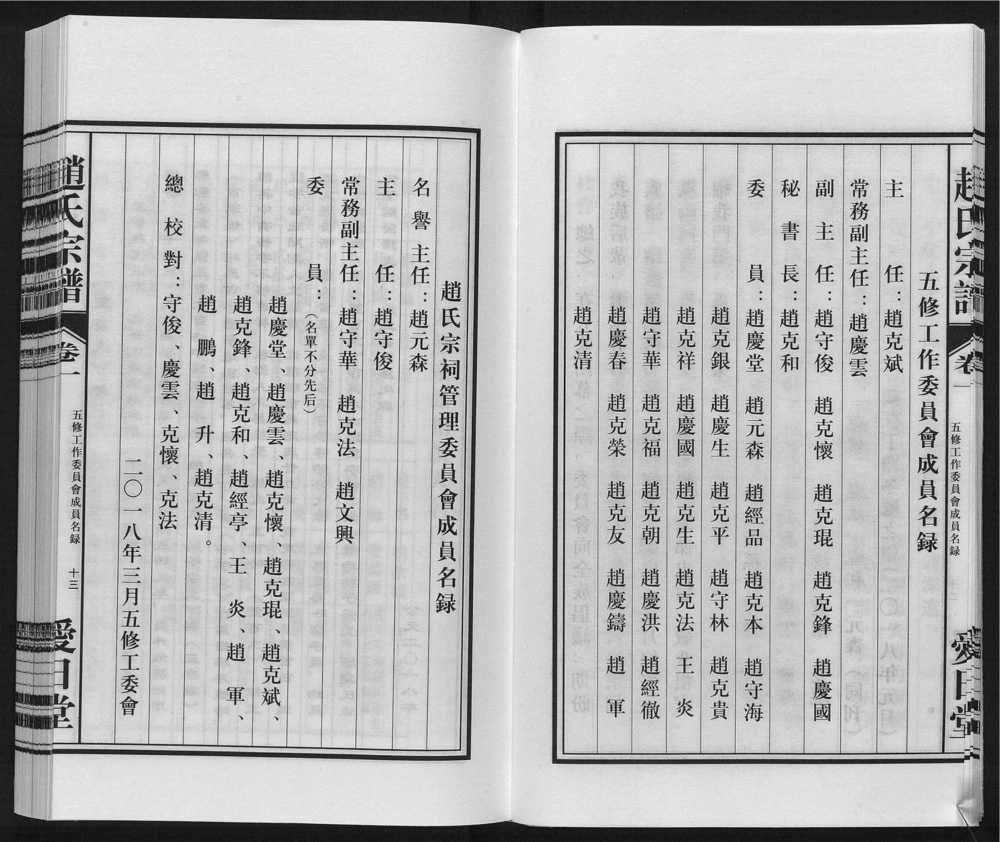 五修工作委員會成員名録
主　任：趙克斌
常務副主任：趙慶雲
副主任：趙守俊　趙克懷　趙克琨　趙克鋒　趙慶國
秘書長：趙克和
委　員：趙慶堂　趙元森　趙經品　趙克本　趙守海
趙克銀　趙慶生　趙克平　趙守林　趙克貴
趙克祥　趙慶國　趙克生　趙克法　王　炎
趙守華　趙克福　趙克朝　趙慶洪　趙經徹
趙慶春　趙克榮　趙克友　趙慶鑄　趙　軍
趙克清
趙氏宗譜
卷一
五修工作委員會成員名録
愛日堂
趙氏宗祠管理委員會成員名録
名譽主任：趙元森
主　任：趙守俊
常務副主任：趙守華　趙克法　趙文興
委　員：（名單不分先后）
趙慶堂、趙慶雲、趙克懷、趙克琨、趙克斌、
趙克鋒、趙克和、趙經亭、王　炎、趙　軍、
趙　鵬、趙　升、趙克清。
總校對：守俊、慶雲、克懷、克法
二〇一八年三月五修工委會
趙氏宗譜
卷一
五修工作委員會成員名録
十三
愛日堂